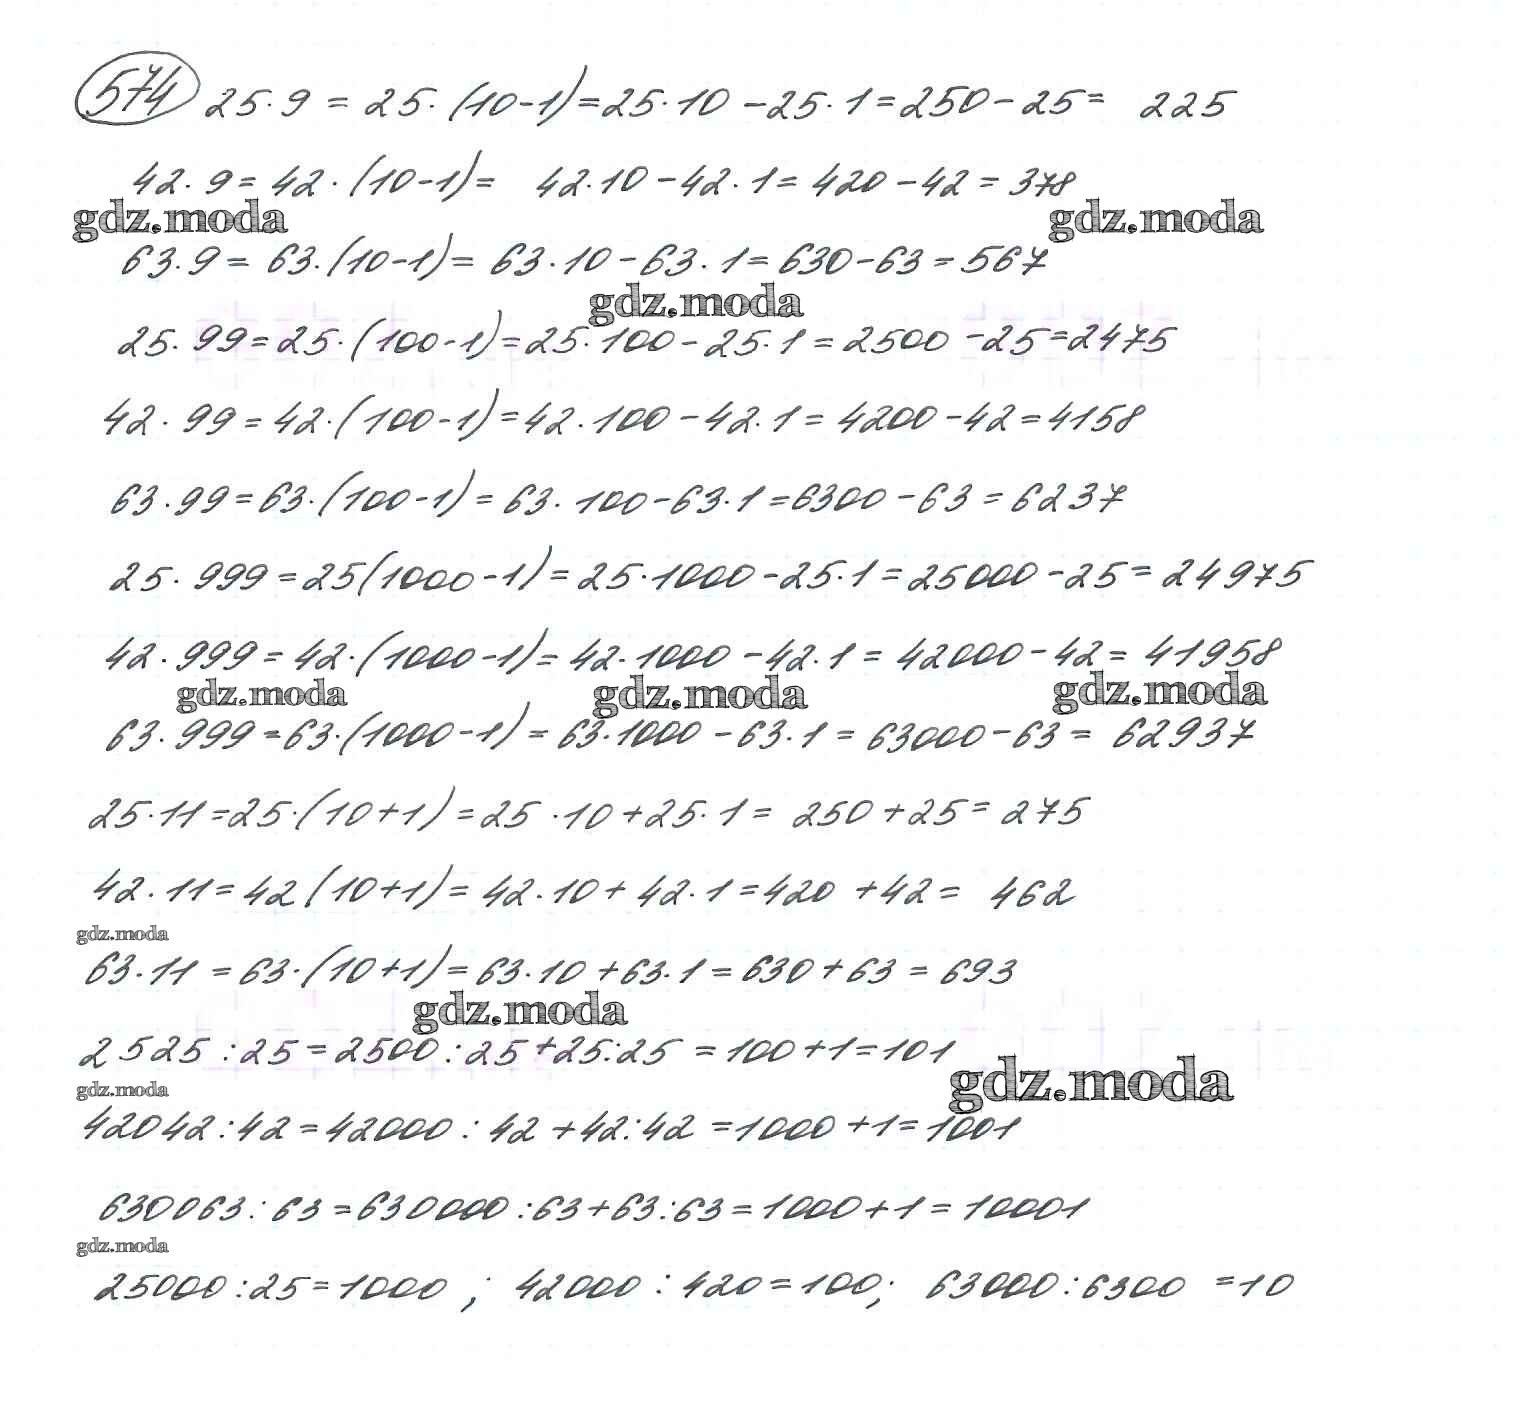 574 25·9 = 25·(10-1)=25·10-25·1=250-25= 225
42·9=42·(10-1)= 42·10-42·1=420-42=378
gdz.moda gdz.moda
63·9=63·(10-1)=63·10-63·1=630-63=567
gdz.moda
25·99=25·(100-1)=25·100-25·1=2500-25=2475
42·99=42·(100-1)=42·100-42·1=4200-42=4158
63·99=63·(100-1)=63·100-63·1=6300-63=6237
25·999=25(1000-1)=25·1000-25·1=25000-25=24975
42·999=42·(1000-1)=42·1000-42·1=42000-42=41958
gdz.moda gdz.moda gdz.moda
63·999=63·(1000-1)=63·1000-63·1=63000-63=62937
25·11=25·(10+1)=25·10+25·1=250+25=275
42·11=42(10+1)=42·10+42·1=420+42=462
gdz.moda
63·11=63·(10+1)=63·10+63·1=630+63=693
gdz.moda
2525:25=2500:25+25:25=100+1=101
gdz.moda gdz.moda
42042:42=42000:42+42:42=1000+1=1001
630063:63=630000:63+63:63=1000+1=10001
gdz.moda
25000:25=1000; 42000:420=100; 63000:6300=10